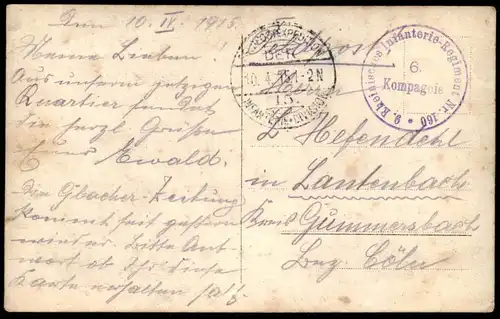 Den 10. IV. 1915.
Meine Lieben!
Aus unserm jetzigen
Quartier sendet
die herzl. Grüße
Euer Ewald.
Die Gbacher-Zeitung
kommt seit gestern
wieder. Bitte Ant-
wort ob Ihr diese
Karte erhalten
Feldpost
FELDPOSTEXPEDITION
10.4. 1-2N
DIVISION
9. Rheinisches Infanterie-Regiment Nr. 160
6.
Kompagnie
Herrn
L Hefendehl
in Lantenbach
Kreis Gummersbach
Bez. Cöln